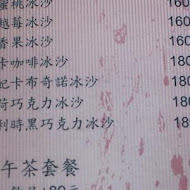 蜜桃冰沙 160
越莓冰沙 160
香果冰沙 160
卡咖啡冰沙 180
妃卡布奇諾冰沙 180
荷巧克力冰沙 180
利時黑巧克力冰沙 180
午茶套餐